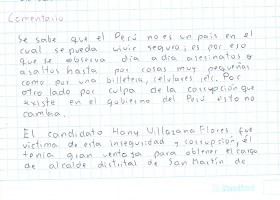 Comentario
Se sabe que el Perú no es un país en el
cual se pueda vivir seguro; es por eso
que se observa día a día asesinatos o
asaltos hasta por cosas muy pequeñas
como por una billetera, celulares, etc. Por
otro lado por culpa de la corrupción que
existe en el gobierno del Perú esto no
cambia.
El candidato Hany Villasana Flores fue
víctima de esta inseguridad y corrupción, él
tenía gran ventaja para obtener el cargo
de alcalde distrital de San Martín de